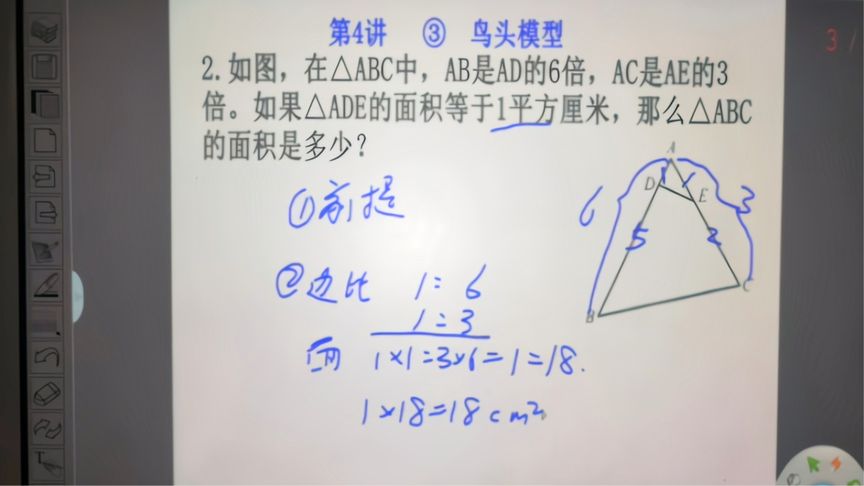 第4讲 ③ 鸟头模型
3/
2.如图，在△ABC中，AB是AD的6倍，AC是AE的3
倍。如果△ADE的面积等于1平方厘米，那么△ABC
的面积是多少？
A
D
E
B
C
6
1
1
3
5
2
①前提
②边比 1:6
1:3
1×1:3×6=1:18.
1×18=18cm²